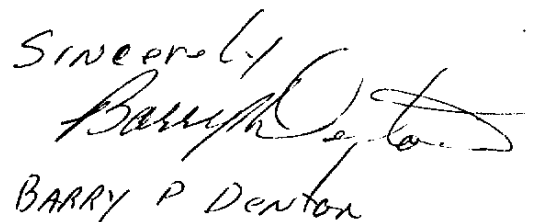 Sincerely
Barry P Denton
BARRY P DENTON